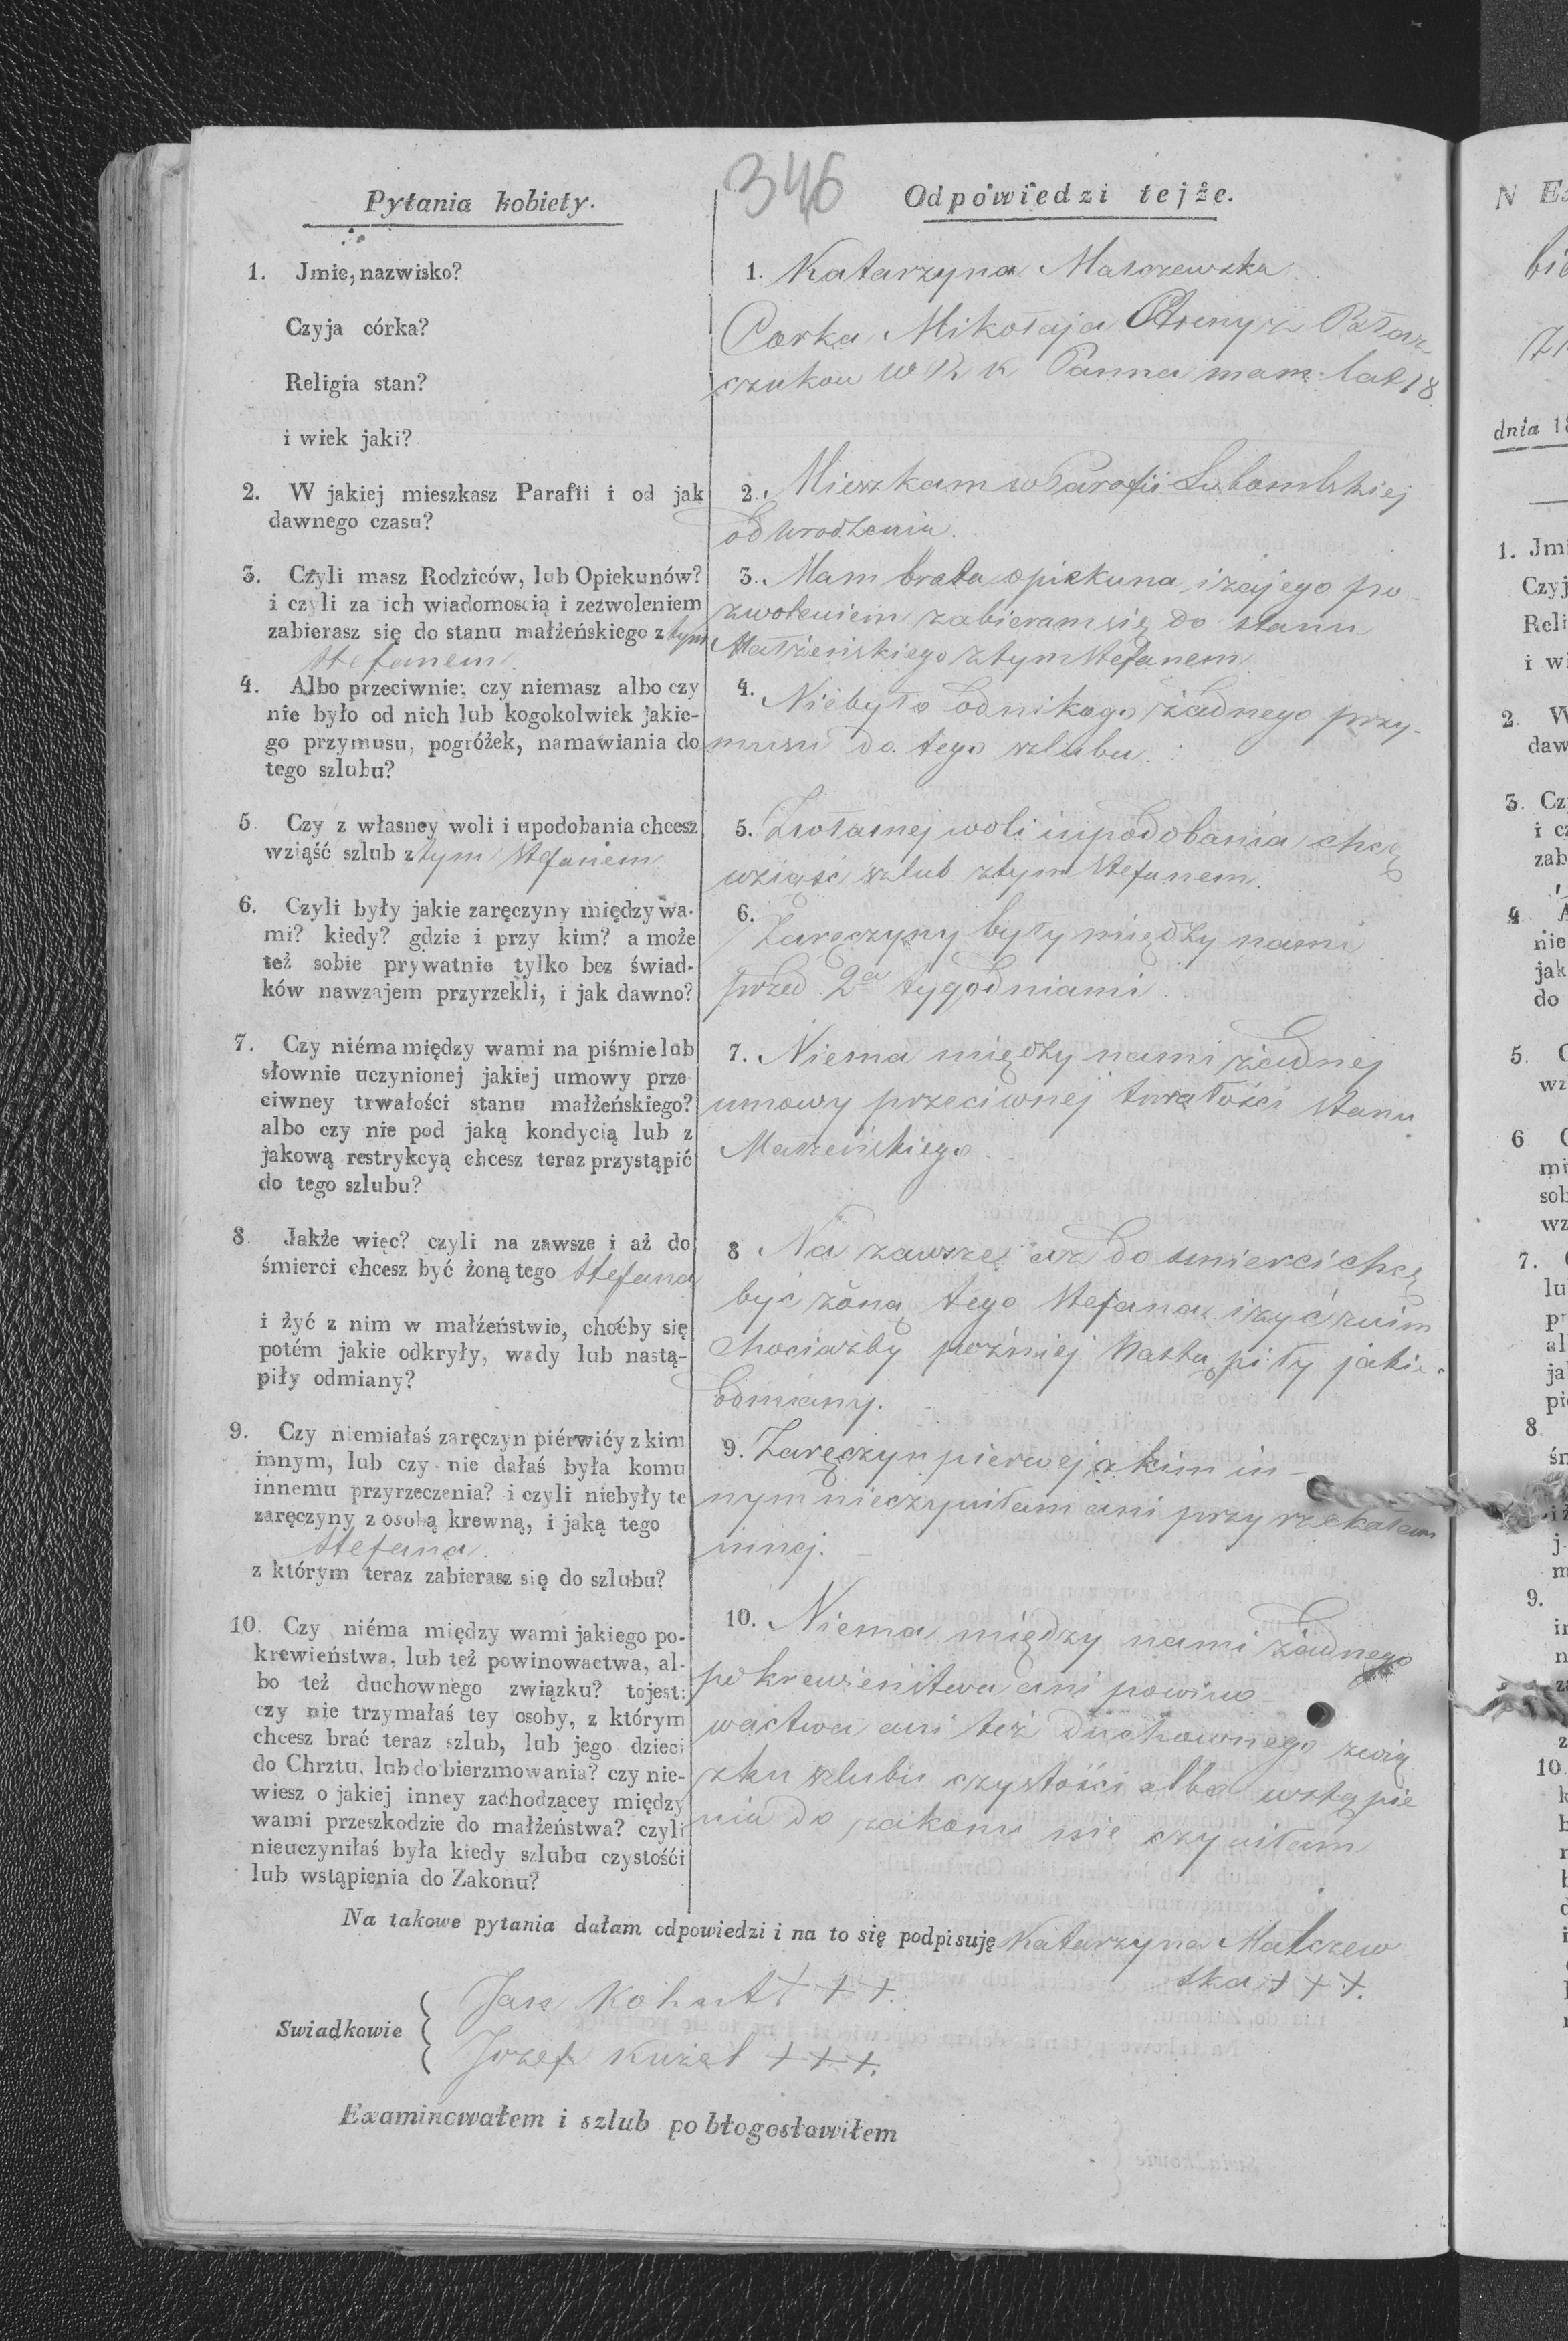 346
Pytania kobiety.
1. Jmie, nazwisko?
Czyja córka?
Religia stan?
i wiek jaki?
2. W jakiej mieszkasz Parafii i od jak
dawnego czasu?
3. Czyli masz Rodziców, lub Opiekunów?
i czyli za ich wiadomoscią i zezwoleniem
zabierasz się do stanu małżeńskiego z tym
Stefanem
4. Albo przeciwnie; czy niemasz albo czy
nie było od nich lub kogokolwiek jakie-
go przymusu, pogróżek, namawiania do
tego szlubu?
5 Czy z własney woli i upodobania chcesz
wziąść szlub z tym Stefanem
6. Czyli były jakie zaręczyny między wa-
mi? kiedy? gdzie i przy kim? a może
też sobie prywatnie tylko bez świad-
ków nawzajem przyrzekli, i jak dawno?
7. Czy niéma między wami na piśmie lub
słownie uczynionej jakiej umowy prze-
ciwney trwałości stanu małżeńskiego?
albo czy nie pod jaką kondycią lub z
jakową restrykcyą chcesz teraz przystąpić
do tego szlubu?
8. Jakże więc? czyli na zawsze i aż do
śmierci chcesz być żoną tego Stefana
i żyć z nim w małżeństwie, choćby się
potém jakie odkryły, wady lub nastą-
piły odmiany?
9. Czy niemiałaś zaręczyn piérwiéy z kim
innym, lub czy nie dałaś była komu
innemu przyrzeczenia? i czyli niebyły te
zaręczyny z osobą krewną, i jaką tego
Stefana
z którym teraz zabierasz się do szlubu?
10. Czy niéma między wami jakiego po-
krewieństwa, lub też powinowactwa, al-
bo też duchownego związku? tojest:
czy nie trzymałaś tey osoby, z którym
chcesz brać teraz szlub, lub jego dzieci
do Chrztu, lub do bierzmowania? czy nie-
wiesz o jakiej inney zachodzącey między
wami przeszkodzie do małżeństwa? czyli
nieuczyniłaś była kiedy szlubu czystośći
lub wstąpienia do Zakonu?
Odpowiedzi tejże.
1. Katarzyna Malczewska
Corka Mikołaja
W R K Panna mam lat 18.
2. Mieszkam w Parafii Lubomlskiej
od urodzenia.
3. Mam brata opiekuna i za jego po-
zwoleniem zabieram się do stanu
Małżeńskiego z tym Stefanem
4. Niebyło od nikogo żadnego przy-
musu do tego szlubu.
5. Z własnej woli i upodobania chcę
wziąść szlub z tym Stefanem.
6. Zaręczyny były między nami
przed 2a tygodniami
7. Niema między nami żadnej
umowy przeciwnej trwałości stanu
Małżeńskiego
8 Na zawsze aż do smierci chcę
być żoną tego Stefana i żyć z nim
chociażby poźniej nastąpiły jakie
odmiany.
9. Zaręczyn pierwej z kim in-
nym nieczyniłam ani przyrzekałam
innej.
10. Niema między nami żadnego
pokrewieństwa ani powino
wactwa ani też duchownego zwią
zku szlubu czystości albo wstąpie
nia do zakonu nie czyniłam
Na takowe pytania dałam odpowiedzi i na to się podpisuję Katarzyna Malczew
ska +++.
Swiadkowie
Jan Kohut +++.
Jozef Kużel +++.
Examinowałem i szlub pobłogosławiłem
N Ex
dnia 18
1. Jm
Czyj
Reli
i wi
2. W
daw
3. Cz
i cz
zab
4 A
nie
jak
do
5. C
wz
6 C
mi
sob
wz
7. C
lu
pr
al
ja
pi
8.
śn
9.
10.